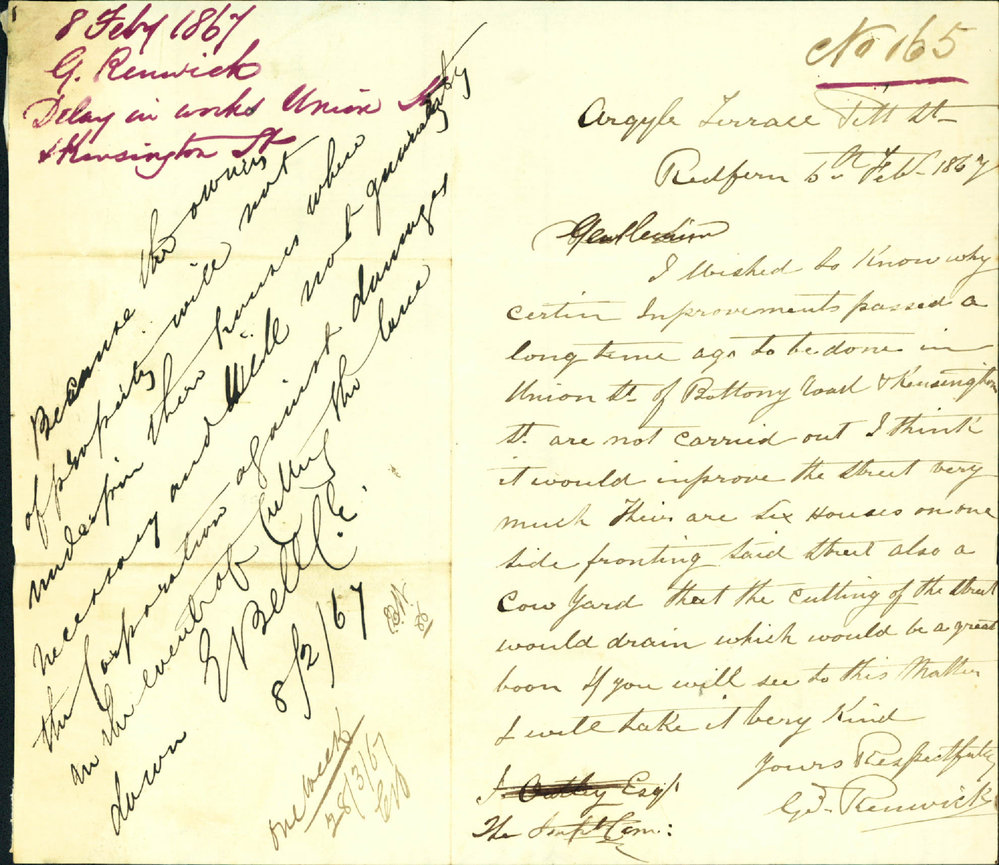 8 Feby 1867
G. Renwick
Delay in works Union St
& Kensington St
Because the owners
of property will not
underpin their houses where
necessary and Will not guarantee
the Corporation against damages
in the event of Cutting the lane
down
E Bell C.E.
8/2/67
one week
28/3/67
No 165
Argyle Terrace Pitt St
Redfern 6th Feb. 1867
Gentlemen
I Wished to Know why
certin Inprovements passed a
long time ago to be done in
Union St of Bottony Road & Kensington
St. are not carried out I think
it would inprove the street very
much Their are Six Houses on one
side fronting said street also a
Cow Yard that the cutting of the street
would drain which would be a great
boon If you will see to this Matter
I will take it Very Kind
Yours Respectfuly
Geo. Renwick
J. Oatley Esq.
The Impt Com: